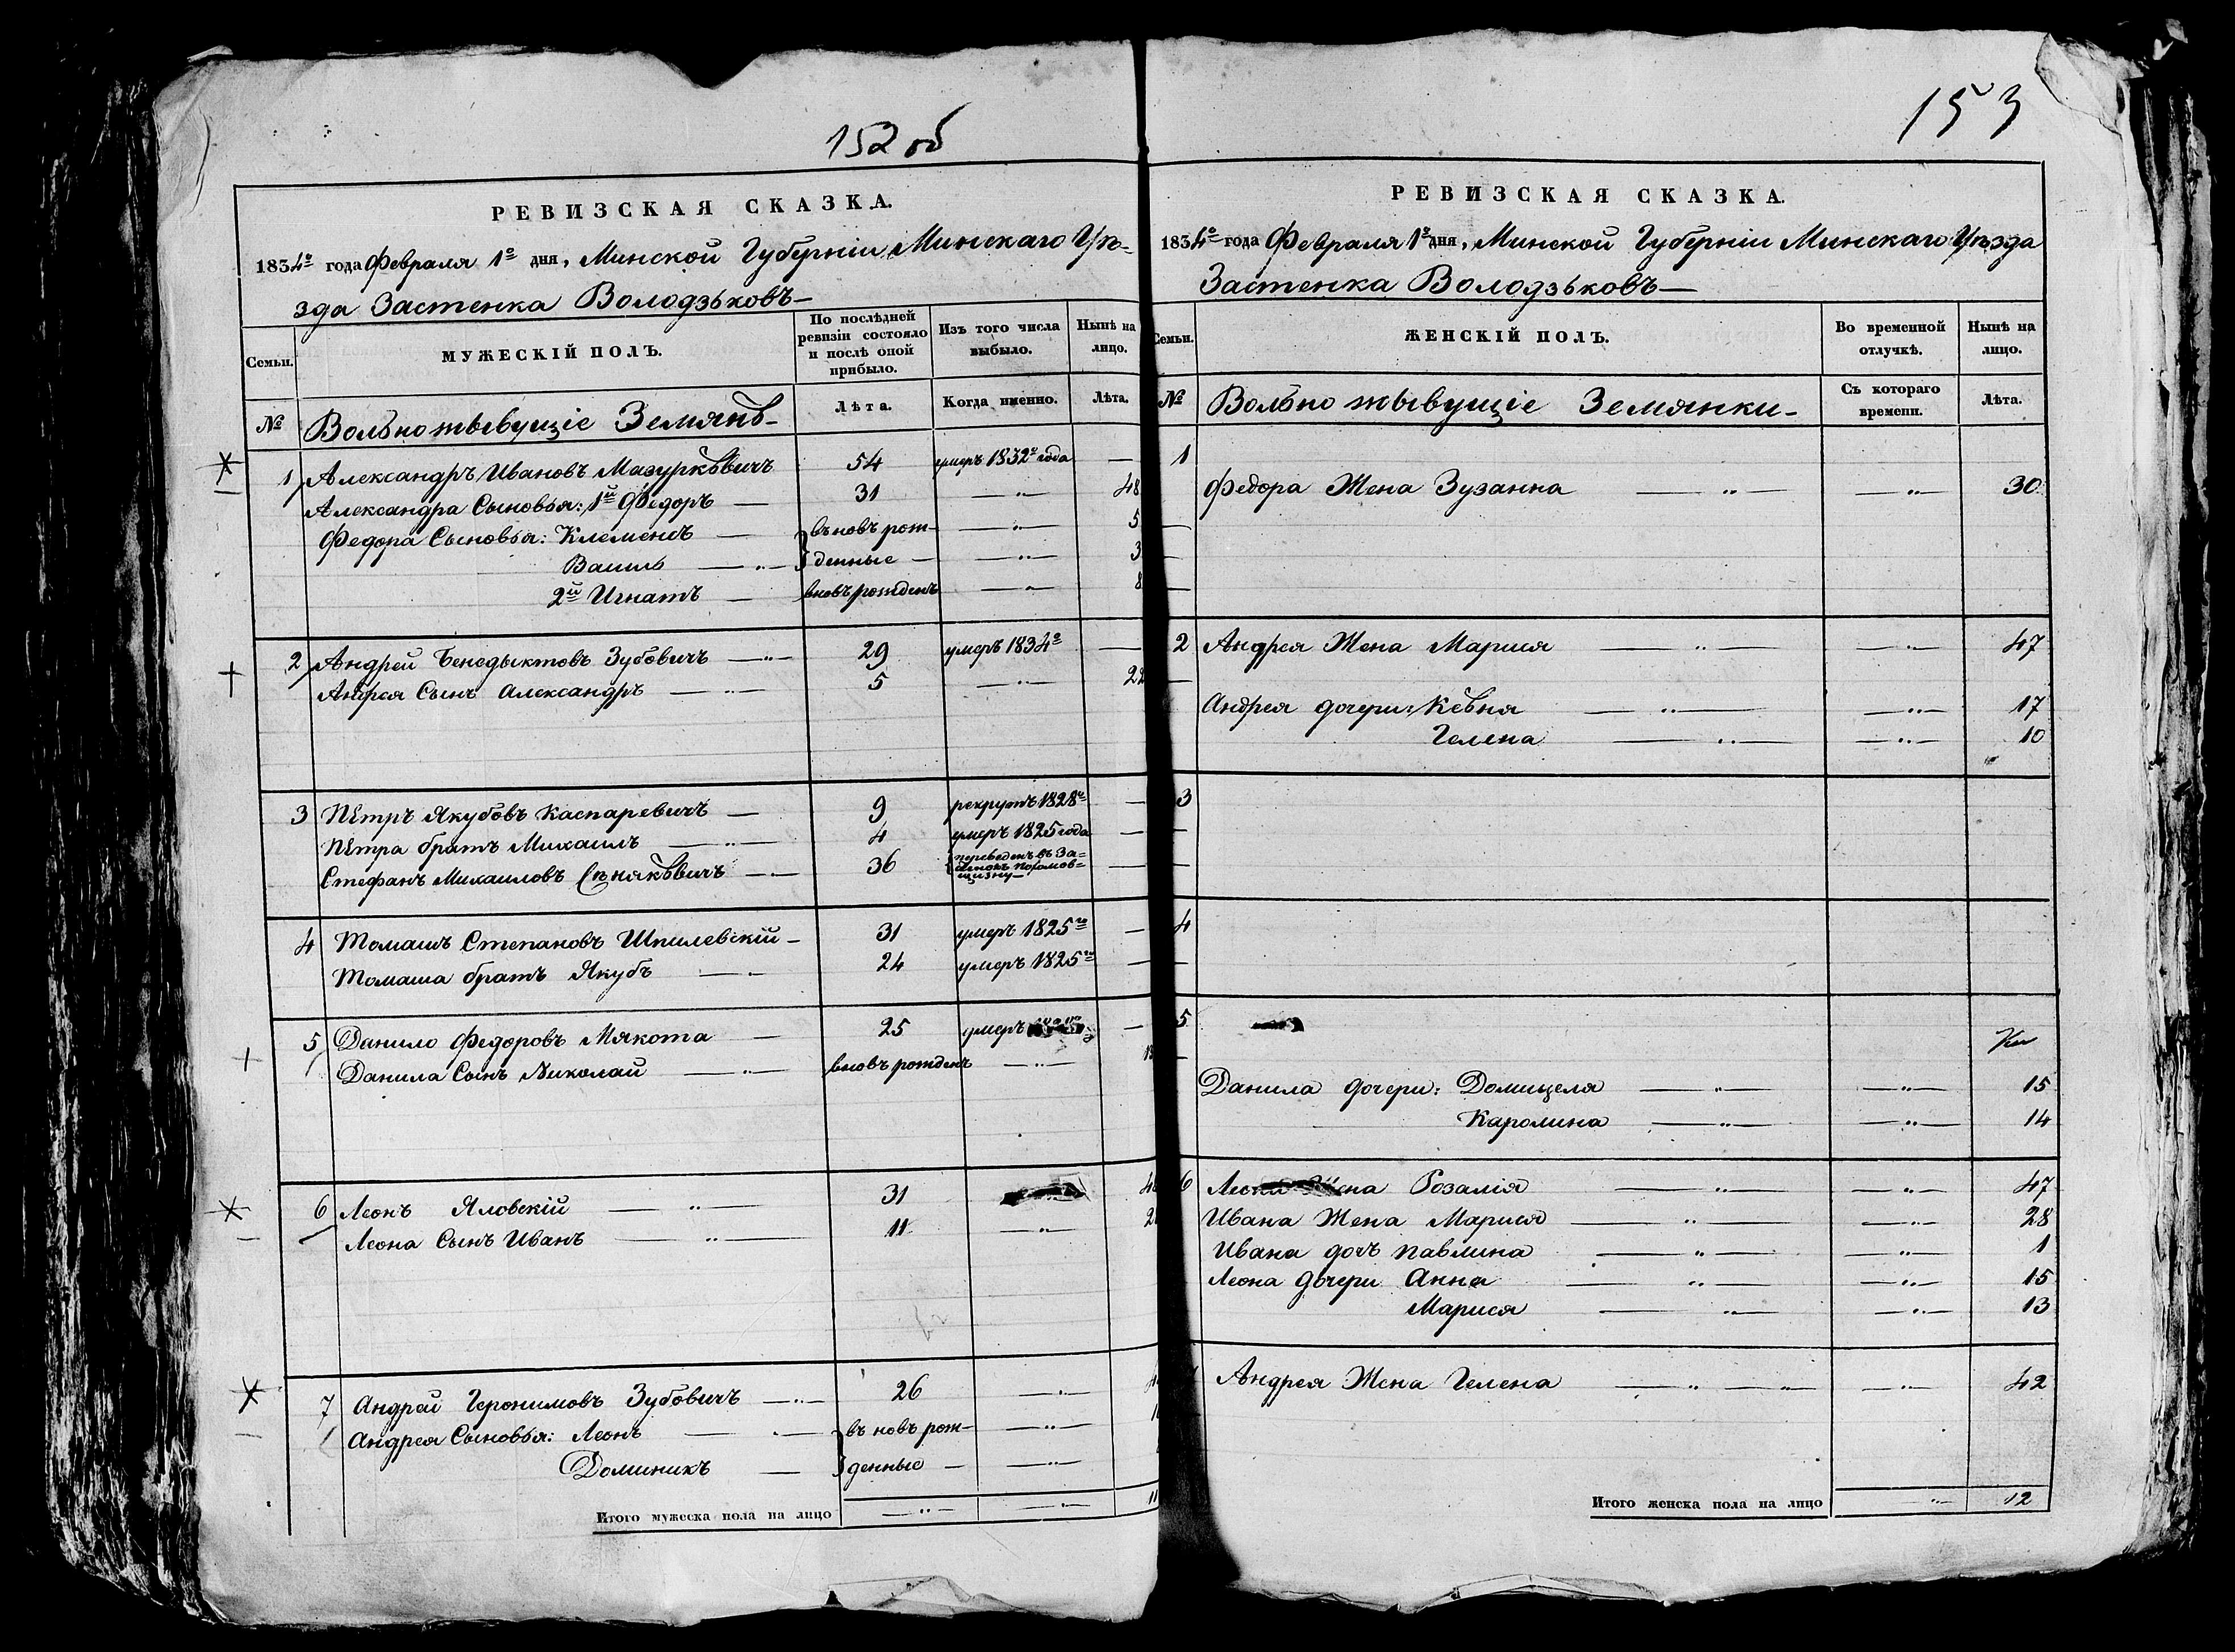 152 об
РЕВИЗСКАЯ СКАЗКА.
1834го года Февраля 1го дня, Минской Губерніи Минскаго Уѣ-
зда Застенка Володзьковъ
Семьи.
МУЖЕСКІЙ ПОЛЪ.
По послѣдней ревизіи состояло и послѣ оной прибыло.
Изъ того числа выбыло.
Нынѣ на лицо.
№
Вольноживущіе Земянѣ
Лѣта.
Когда именно.
Лѣта.
1 Александръ Ивановъ Мазуркѣвичъ 54 умеръ 1832го года —
Александра Сыновья: 1й Федоръ 31 — 48
Федора Сыновья: Клеменсъ въновь рож- — 5
Василь денные — 3
2й Игнатъ вновь рожденъ — 8
2 Андрей Бенедыктовъ Зубовичъ 29 умеръ 1834го —
Андрея Сынъ Александръ 5 — 22
3 Петръ Якубовъ Каспаревичъ 9 рекрутъ 1828го —
Петра братъ Михаилъ 4 умеръ 1825 года —
Стефанъ Михаиловъ 36 переведенъ въ За-
4 Томашъ Степановъ Шпилевскій 31 умеръ 1825го —
Томаша братъ Якубъ 24 умеръ 1825го —
5 Данило Федоровъ Мякота 25 умеръ —
Данила Сынъ Николай вновь рожденъ —
6 Леонъ Яловскій 31
Леона Сынъ Иванъ 11 —
7 Андрей Геронимовъ Зубовичъ 26 —
Андрея Сыновья: Леонъ въ новь рож- —
Доминикъ денные —
Итого мужеска пола на лицо — — 11
153
РЕВИЗСКАЯ СКАЗКА.
1834го года Февраля 1го дня, Минской Губерніи Минскаго Уѣзда
Застенка Володзьковъ
Семьи.
ЖЕНСКІЙ ПОЛЪ.
Во временной отлучкѣ.
Нынѣ на лицо.
№
Вольно живущіе Земянки
Съ котораго времени.
Лѣта.
1
Федора Жена Зузанна — — 30
2 Андрея Жена Марися — — 47
Андрея дочери: Ксѣвня — — 17
Гелена — — 10
3
4
5
Данила дочери: Домицеля — — 15
Каролина — — 14
6 Леона Жена Розалія — — 47
Ивана Жена Марися — — 28
Ивана дочь Павлина — — 1
Леона дочери Анна — — 15
Марися — — 13
Андрея Жена Гелена — — 42
Итого женска пола на лицо — 12